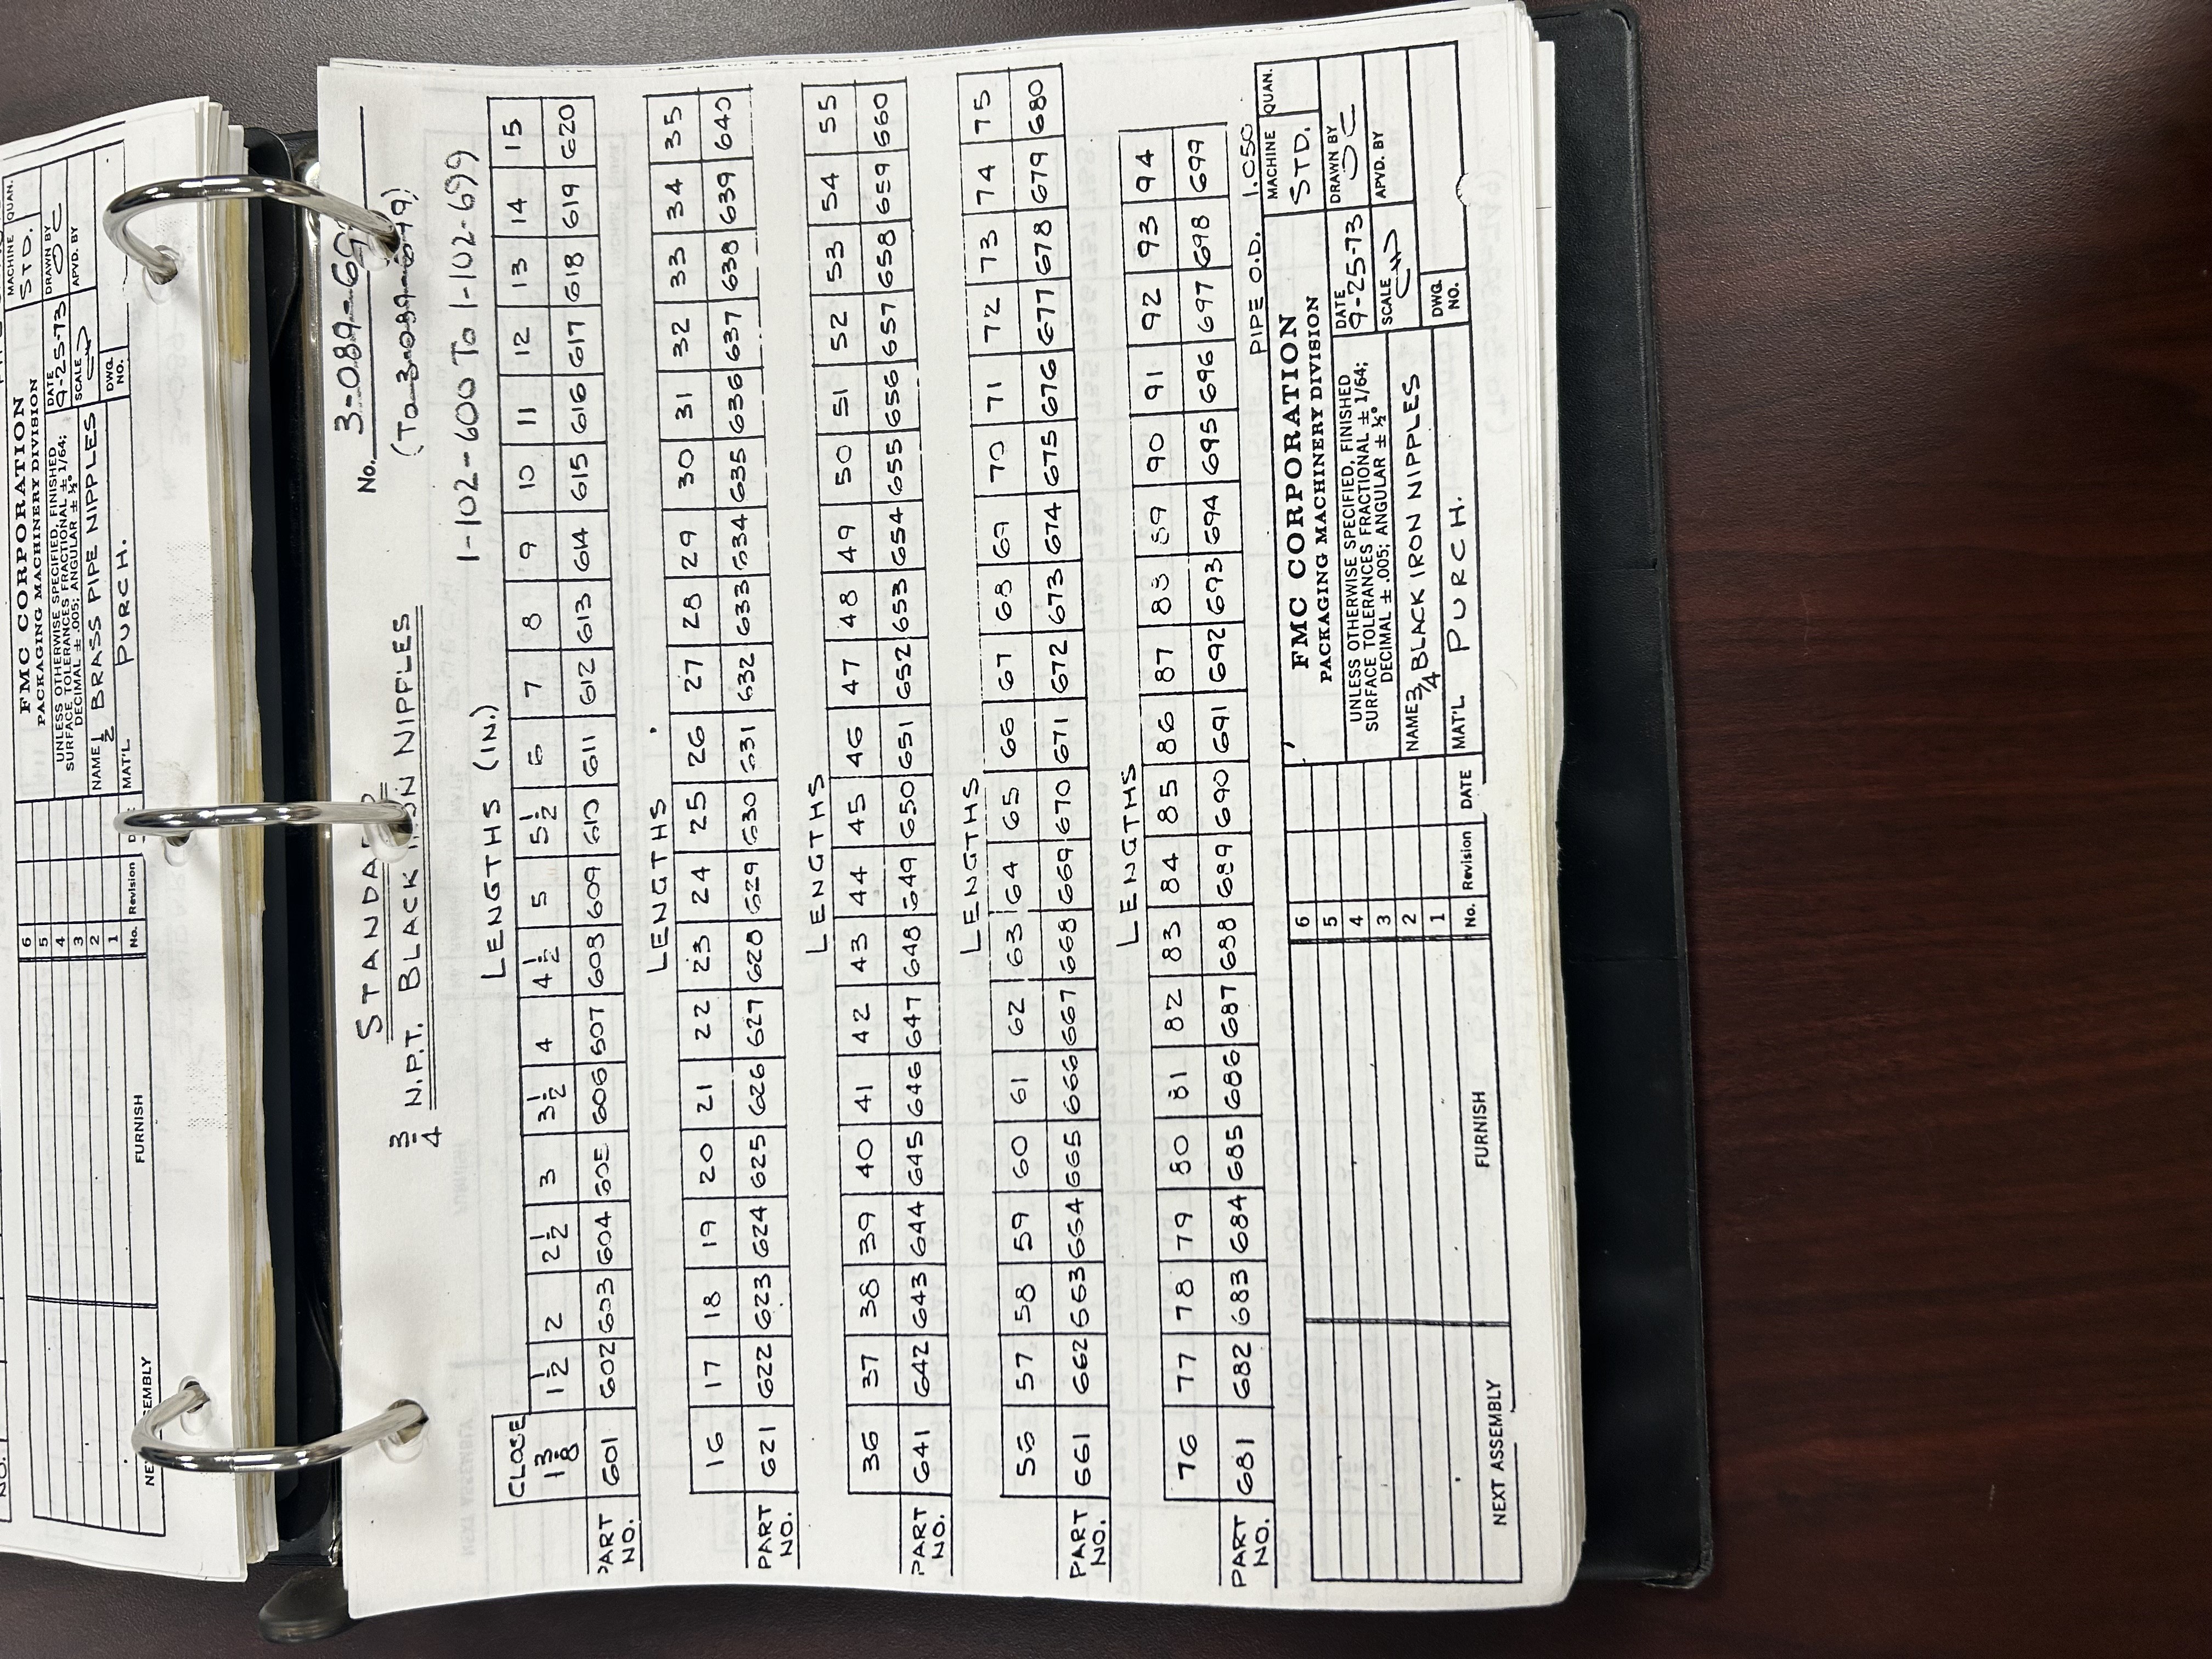 FMC CORPORATION
PACKAGING MACHINERY DIVISION
MACHINE QUAN.
STD.
UNLESS OTHERWISE SPECIFIED, FINISHED
SURFACE TOLERANCES FRACTIONAL ± 1/64;
DECIMAL ± .005; ANGULAR ± ½°
DATE
9-25-73
DRAWN BY
SCALE
APVD. BY
NAME 1/2 BRASS PIPE NIPPLES
MAT'L PURCH.
DWG. NO.
6
5
4
3
2
1
No. Revision
FURNISH
STANDARD
3/4 N.P.T. BLACK IRON NIPPLES
No. 3-089-
(To 3-089-)
1-102-600 To 1-102-699
LENGTHS (IN.)
CLOSE
1 3/8 1 1/2 2 2 1/2 3 3 1/2 4 4 1/2 5 5 1/2 6 7 8 9 10 11 12 13 14 15
PART NO. 601 602 603 604 605 606 607 608 609 610 611 612 613 614 615 616 617 618 619 620
LENGTHS
16 17 18 19 20 21 22 23 24 25 26 27 28 29 30 31 32 33 34 35
PART NO. 621 622 623 624 625 626 627 628 629 630 631 632 633 634 635 636 637 638 639 640
LENGTHS
36 37 38 39 40 41 42 43 44 45 46 47 48 49 50 51 52 53 54 55
PART NO. 641 642 643 644 645 646 647 648 649 650 651 652 653 654 655 656 657 658 659 660
LENGTHS
56 57 58 59 60 61 62 63 64 65 66 67 68 69 70 71 72 73 74 75
PART NO. 661 662 663 664 665 666 667 668 669 670 671 672 673 674 675 676 677 678 679 680
LENGTHS
76 77 78 79 80 81 82 83 84 85 86 87 88 89 90 91 92 93 94
PART NO. 681 682 683 684 685 686 687 688 689 690 691 692 693 694 695 696 697 698 699
PIPE O.D. 1.050
FMC CORPORATION
PACKAGING MACHINERY DIVISION
MACHINE QUAN.
STD.
UNLESS OTHERWISE SPECIFIED, FINISHED
SURFACE TOLERANCES FRACTIONAL ± 1/64;
DECIMAL ± .005; ANGULAR ± ½°
DATE
9-25-73
DRAWN BY
SCALE
APVD. BY
NAME 3/4 BLACK IRON NIPPLES
MAT'L. PURCH.
DWG. NO.
6
5
4
3
2
1
No. Revision DATE
NEXT ASSEMBLY FURNISH